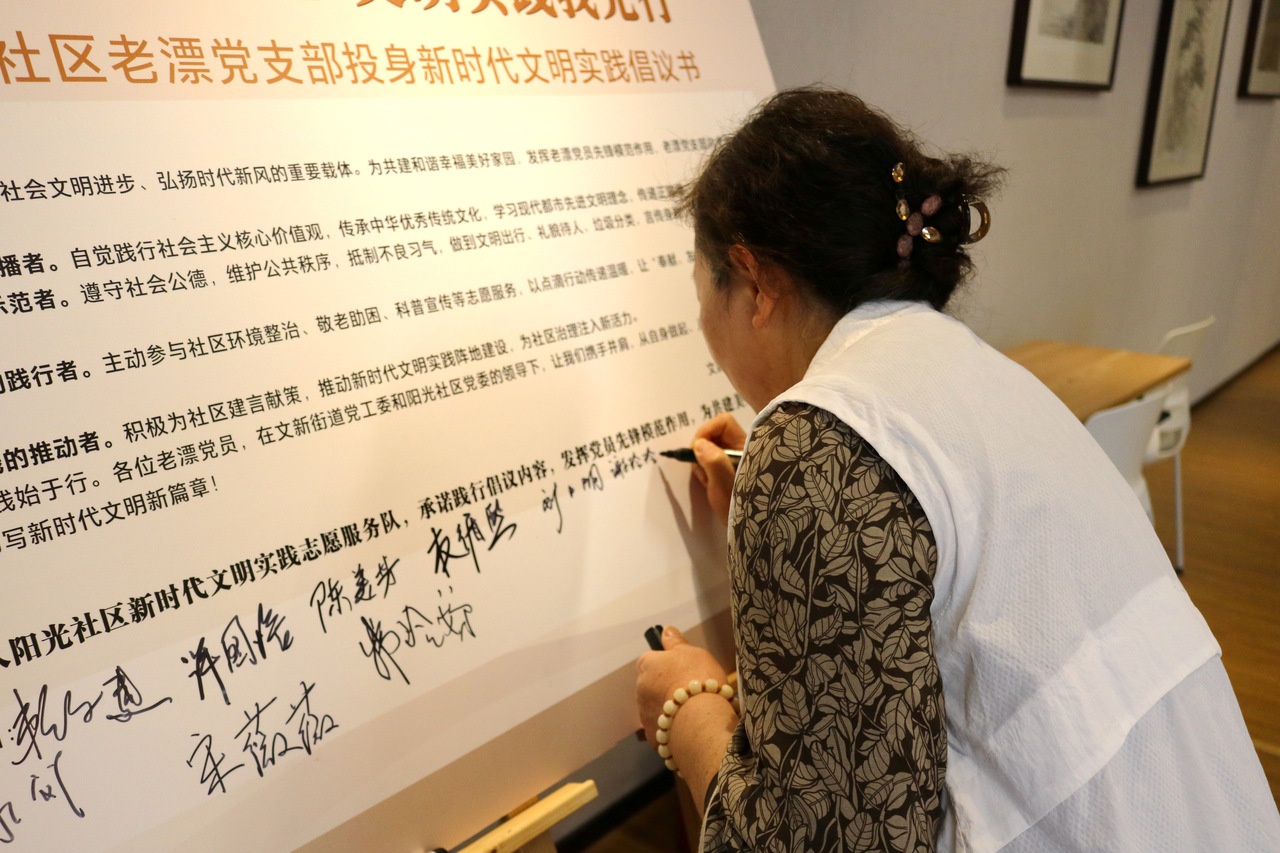 文明实践我先行
社区老漂党支部投身新时代文明实践倡议书
社会文明进步、弘扬时代新风的重要载体。为共建和谐幸福美好家园，发挥老漂党员先锋模范作用，老漂党支部
播者。自觉践行社会主义核心价值观，传承中华优秀传统文化，学习现代都市先进文明理念，传递正
示范者。遵守社会公德，维护公共秩序，抵制不良习气，做到文明出行、礼貌待人、垃圾分类，宣传
践行者。主动参与社区环境整治、敬老助困、科普宣传等志愿服务，以点滴行动传递温暖，让“奉献、
的推动者。积极为社区建言献策，推动新时代文明实践阵地建设，为社区治理注入新活力。
践始于行。各位老漂党员，在文新街道党工委和阳光社区党委的领导下，让我们携手并肩，从自身做起，
写新时代文明新篇章！
文
人阳光社区新时代文明实践志愿服务队，承诺践行倡议内容，发挥党员先锋模范作用，为共建
宋薇薇